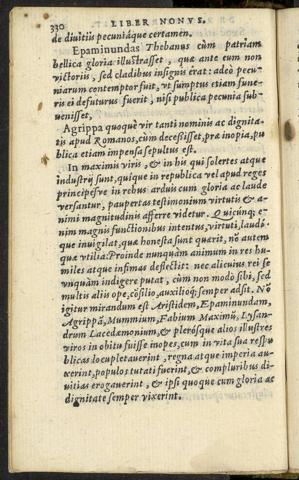 330 LIBER NONVS.
de divitiis pecuniáque certamen.
Epaminundas Thebanus cùm patriam
bellica gloria illustrasset, quæ ante eum non
victoriis, sed cladibus insignis erat: adeò pecu-
niarum contemptor fuit, vt sumptus etiam fune-
ris ei defuturus fuerit, nisi publica pecunia sub-
uenisset,
Agrippa quoquè vir tanti nominis ac dignita-
tis apud Romanos, cùm decessisset, præ inopia, pu
blica etiam impensa sepultus est.
In maximis viris, & in his qui solertes atque
industrij sunt, quique in republica vel apud reges
principesve in rebus arduis cum gloria ac laude
versantur, paupertas testimonium virtutis & a-
nimi magnitudinis afferre videtur. Quicūnq; e-
nim magnis functionibus intentus, virtuti, laudi-
que inuigilat, quæ honesta sunt quærit, nō autem
quæ vtilia: Proinde nunquàm animum in res hu-
miles atque infimas deflectit: nec alicuius rei se
vnquàm indigere putat, cùm non modò sibi, sed
multis aliis ope, cōsilio, auxilióq; semper adsit. Nō
igitur mirandum est Aristidem, Epaminundam,
Agrippā, Mummium, Fabium Maximū, Lysan-
drum Lacedæmonium, & plerósque alios illustres
viros in obitu suisse inopes, cum in vita sua respu
blicas locupletauerint, regna atque imperia au-
xerint, populos tutati fuerint, & compluribus di-
uitias erogauerint, & ipsi quoque cum gloria ac
dignitate semper vixerint.